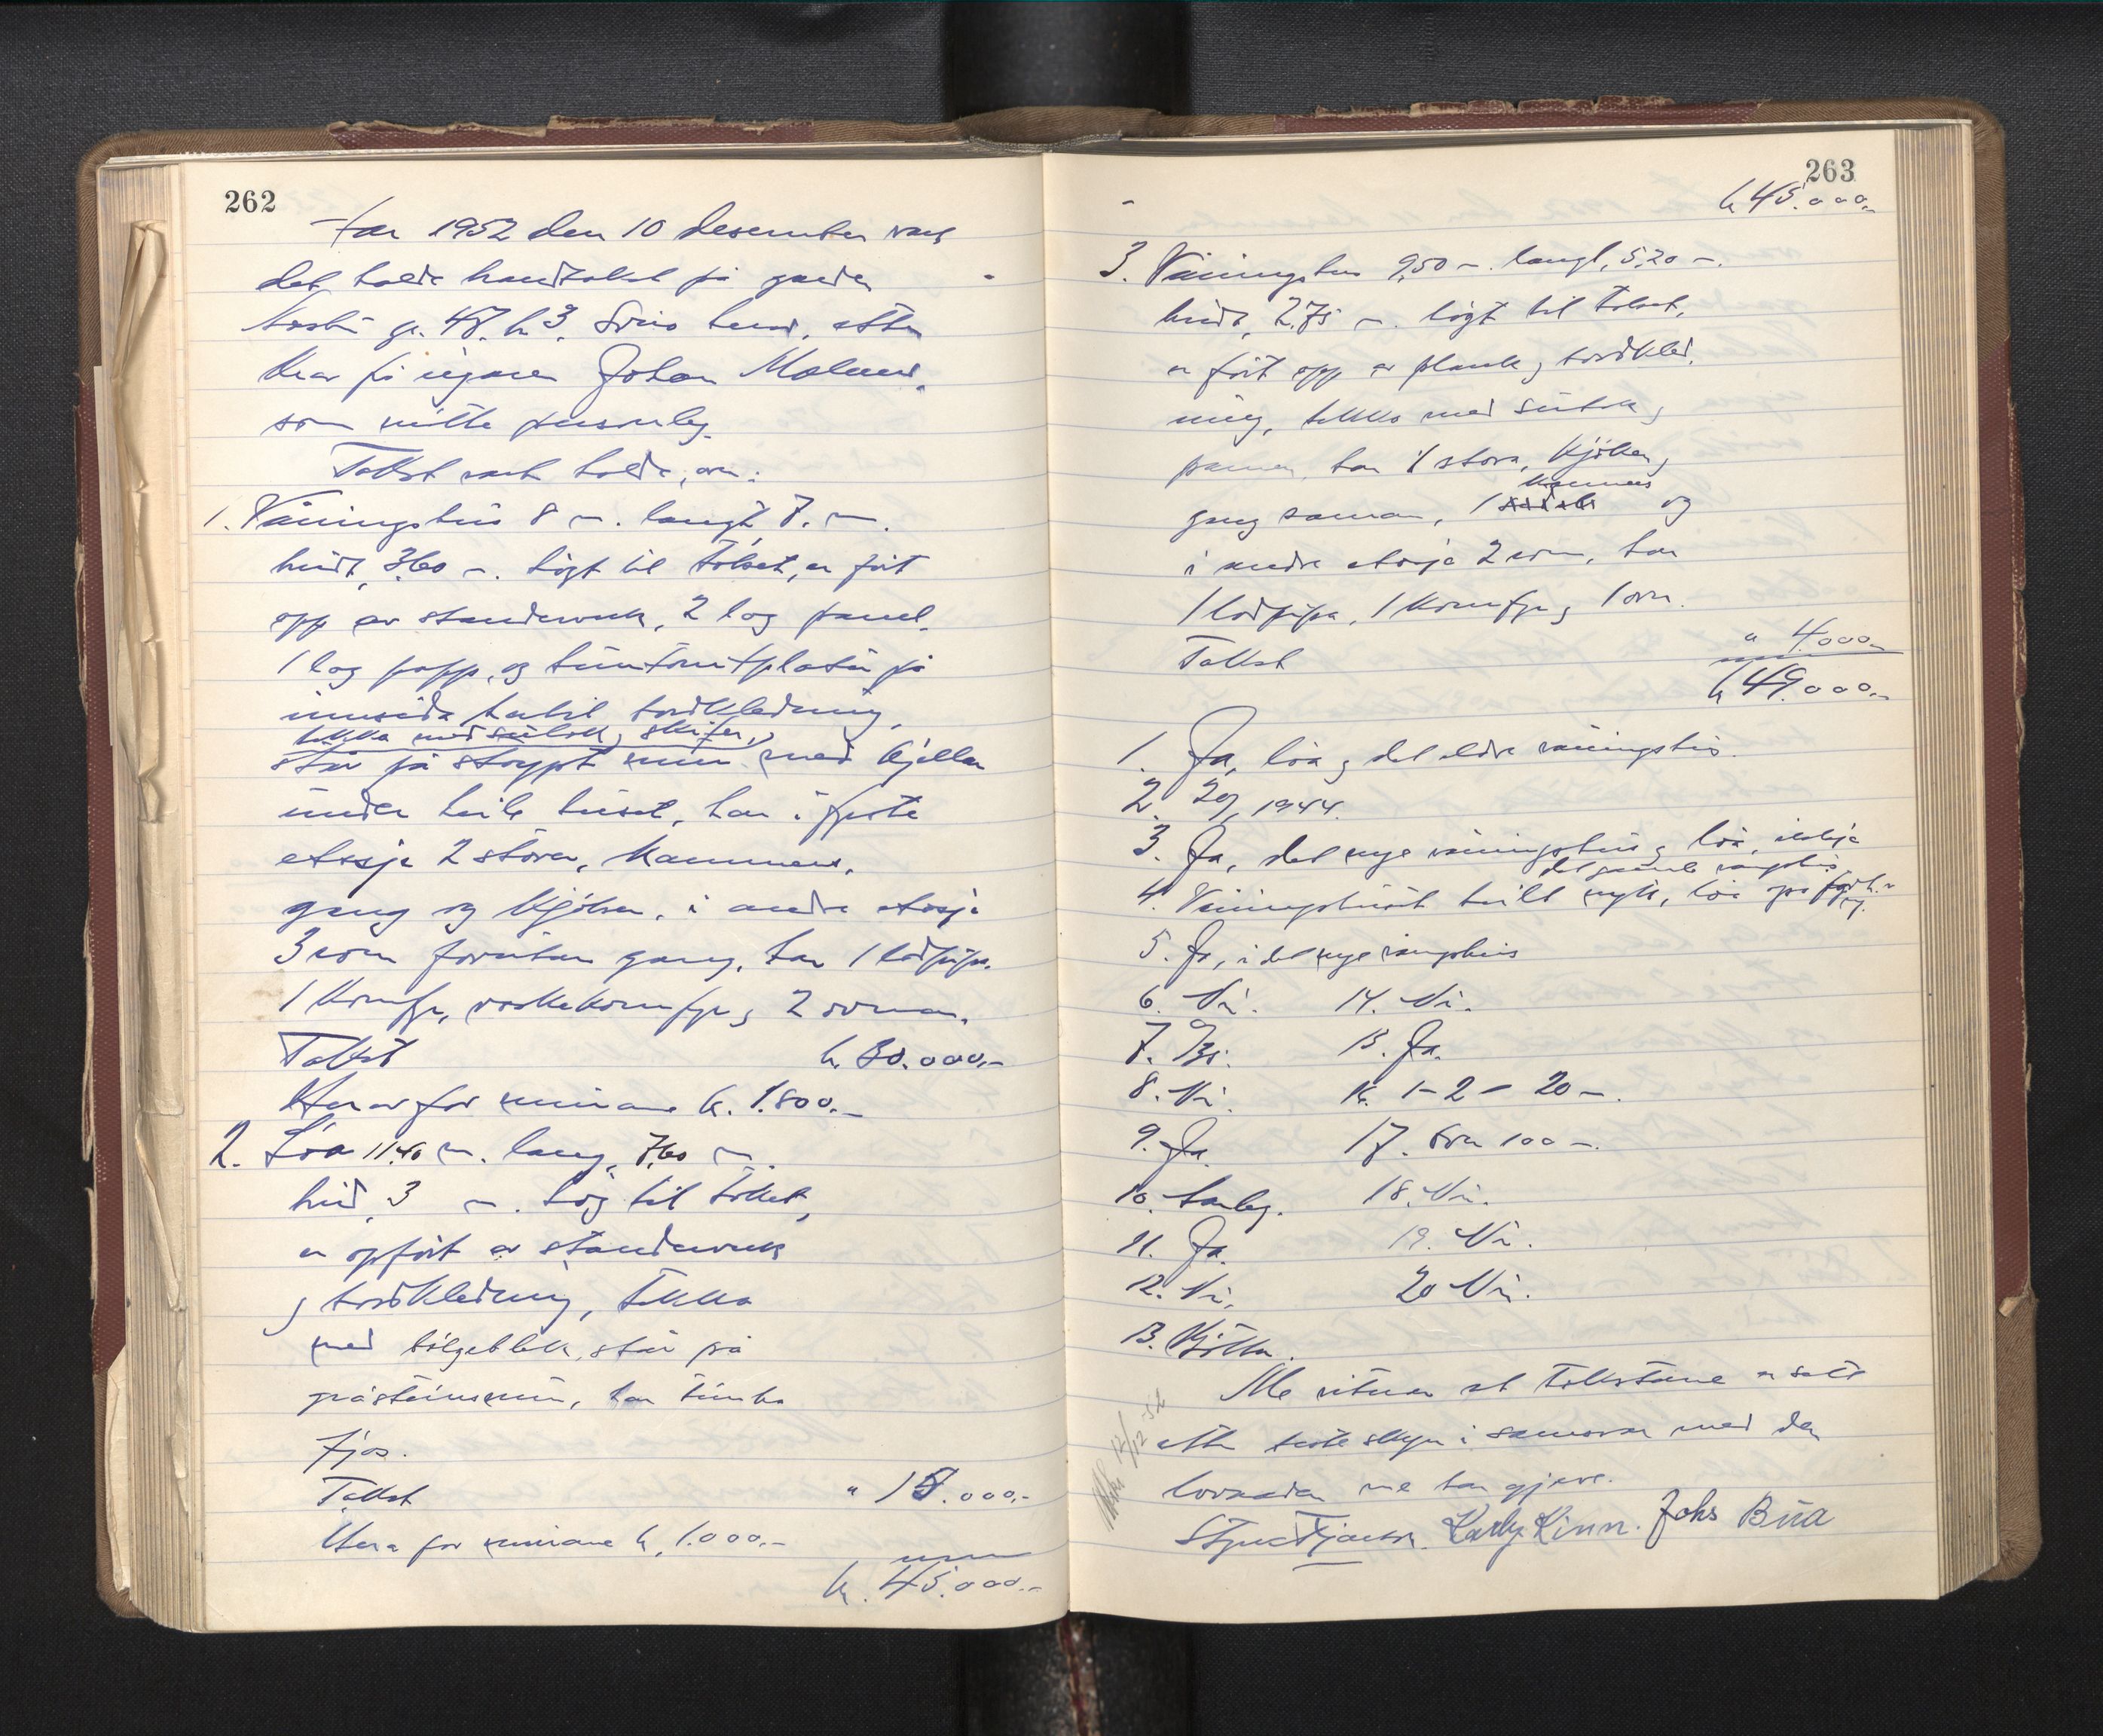 262
År 1952 den 10 desember vart
det halde branntakst på garden
gr. 48, br. 3, herad, etter
krav frå eigaren Johan
som møtte personleg.
Takst vart halde over:
1. Våningshus 8 m. langt, 7. m.
breidt, 3,60 m. høgt til taket, er ført
opp av standerverk, 2 lag panel,
1 lag papp, og plater på
innsida bordkledning,
tekka med sutak, skifer,
står på støypt mur med kjellar
under heile huset, har i fyrste
etasje 2 stover, kammers,
gang og kjøken, i andre etasje
3 rom forutan gang, har 1 lodpipe,
1 komfyr, vaskekomfyr og 2 omnar.
Takst kr. 30.000,-
Herav for murane kr. 1.800.-
2. Løa 11,40 m. lang, 7,60 m.
breid, 3 m. høg til taket,
er oppført av standerverk
og bordkledning, tekka
med bølgeblekk, står på
gråsteinsmur, har
fjøs.
Takst " 15.000,-
Herav for murane kr. 1.000,-
kr. 45.000.-
263
kr 45.000,-
3. Våningshus 9,50 m. langt, 5,20 m.
breidt, 2,75 m. høgt til taket,
er ført opp av plank og bordkled-
ning, tekka med sutak og
har 1 stova, kjøken og
kammers
gang saman, 1 og
i andre etasje 2 rom, har
1 lodpipe, 1 komfyr og 1 omn.
Takst " 4.000,-
kr 49.000,-
1. Ja, løa og det eldre våningshus.
2. 1944.
3. Ja, det nye våningshus og løa, ikkje
det gamle våningshus
4. Våningshuset heilt nytt, løa
5. Ja, i det nye våningshus
6. Nei. 14. Nei.
7. 15. Ja.
8. Nei. 16. 1-2 - 20 m.
9. Ja. 17. Over 100 m.
10. 18. Nei.
11. Ja. 19. Nei.
12. Nei. 20 Nei.
13.
Me vitnar at takstane er sett
etter beste skyn i samsvar med den
lovnaden me har gjeve.
12/12-52
Karl Kinn. Johs Bua